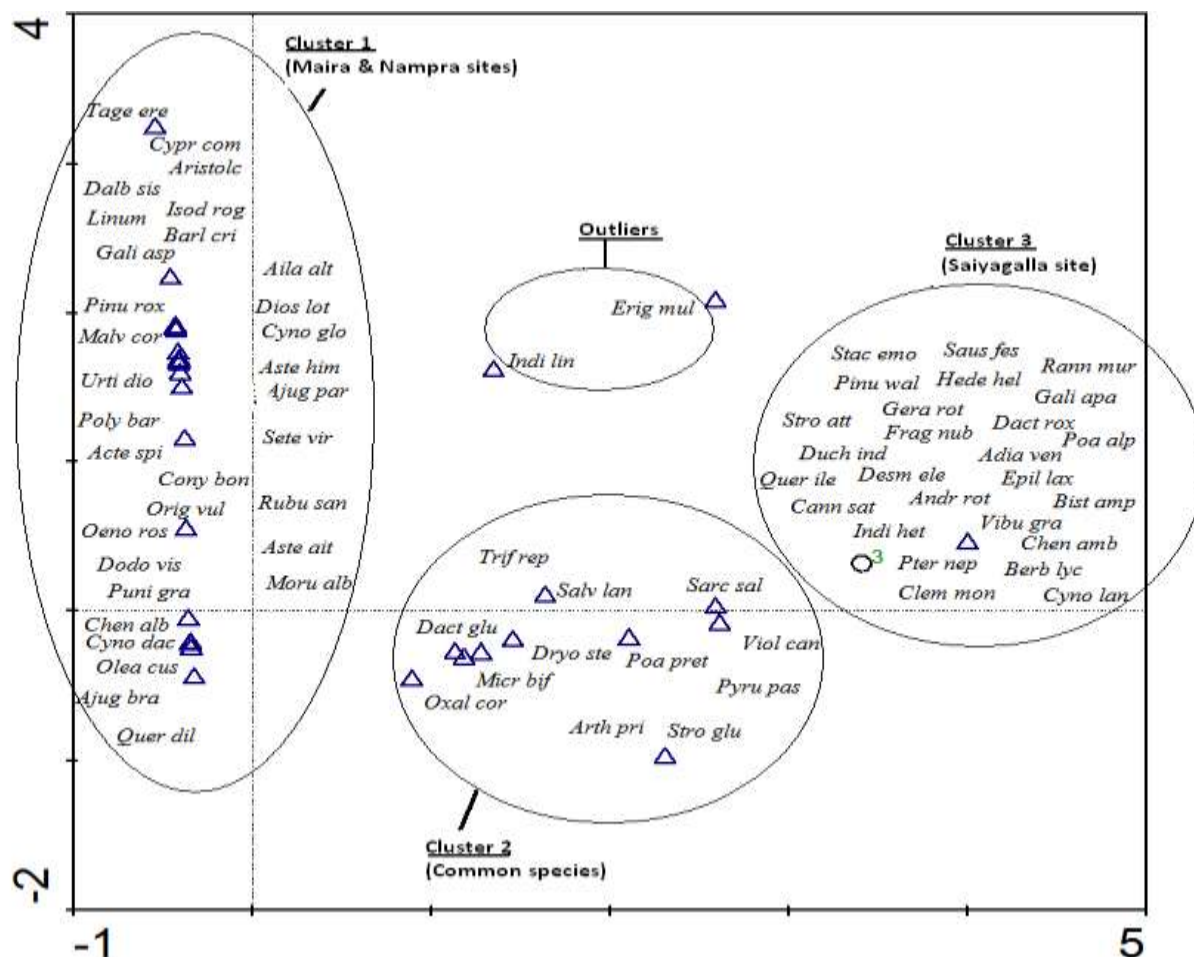 4
Cluster 1
(Maira & Nampra sites)
Tage ere
Cypr com
Aristolc
Dalb sis
Isod rog
Linum
Barl cri
Gali asp
Aila alt
Pinu rox
Dios lot
Malv cor
Cyno glo
Urti dio
Aste him
Ajug par
Poly bar
Sete vir
Acte spi
Cony bon
Rubu san
Orig vul
Oeno ros
Aste ait
Dodo vis
Moru alb
Puni gra
Chen alb
Cyno dac
Olea cus
Ajug bra
Quer dil
Outliers
Erig mul
Indi lin
Cluster 3
(Saiyagalla site)
Stac emo
Saus fes
Rann mur
Pinu wal
Hede hel
Gali apa
Gera rot
Stro att
Dact rox
Frag nub
Poa alp
Duch ind
Adia ven
Quer ile
Desm ele
Epil lax
Cann sat
Andr rot
Bist amp
Indi het
Vibu gra
3
Chen amb
Pter nep
Berb lyc
Clem mon
Cyno lan
Trif rep
Salv lan
Sarc sal
Dact glu
Dryo ste
Poa pret
Viol can
Micr bif
Oxal cor
Pyru pas
Arth pri
Stro glu
Cluster 2
(Common species)
-2
-1
5